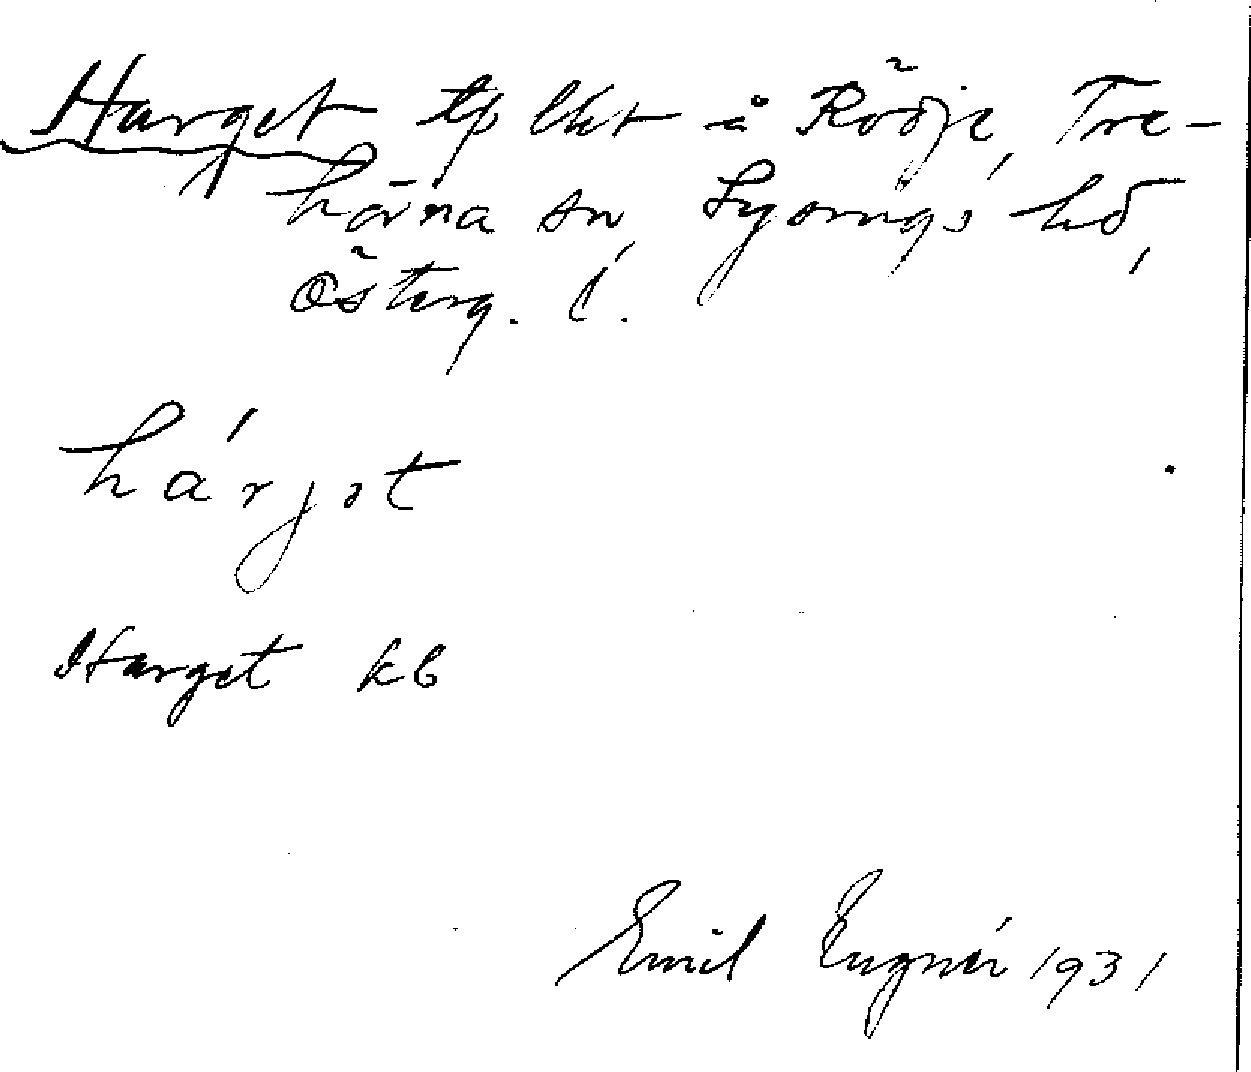 Harget tp lkt å Rödje, Tre-
hörna sn, Lysings hd,
Österg. l.
hárjat
Harget kb
Emil Eugnér 1931